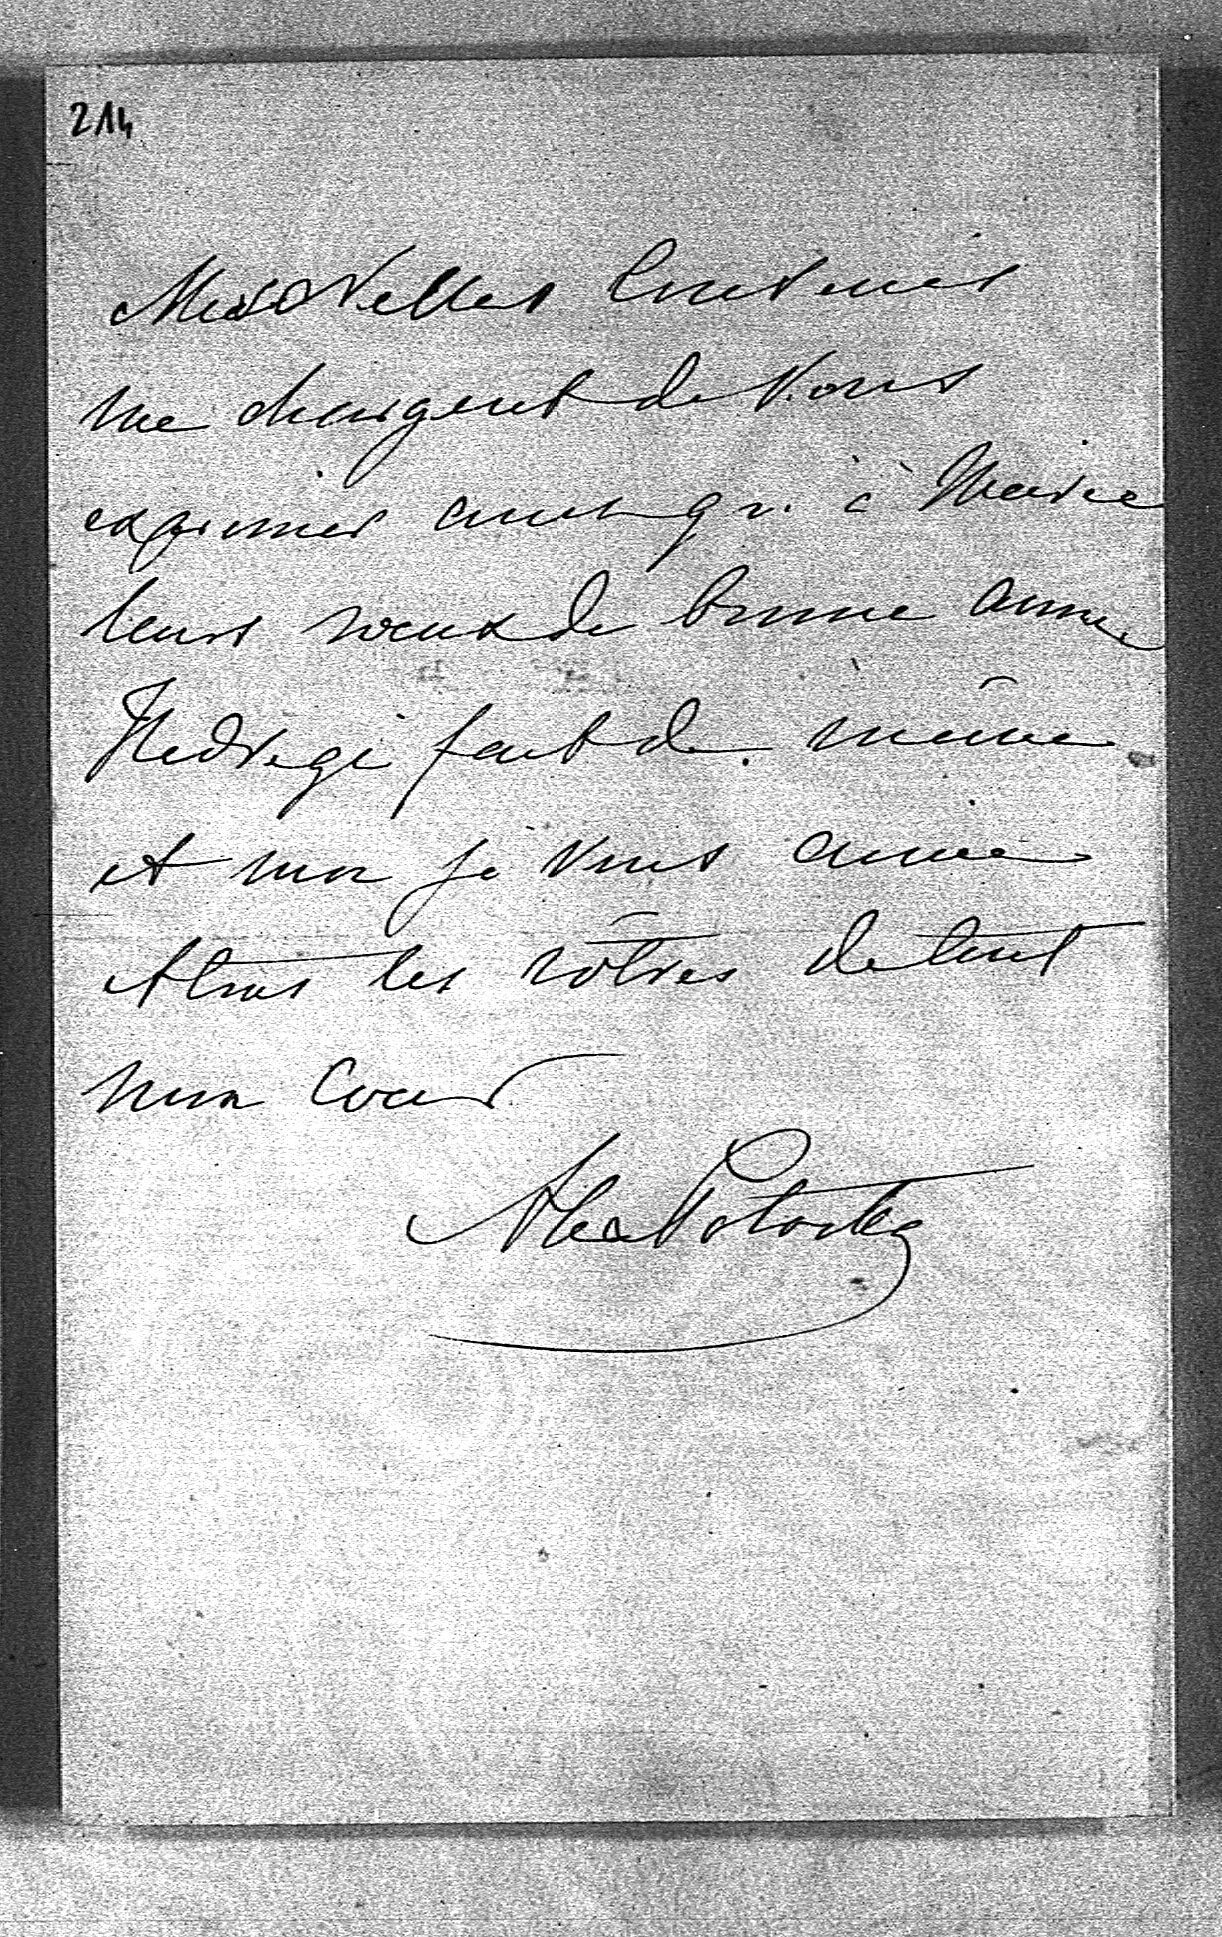 214
Mes Nelles Cousines
me chargent de Vous
exprimer ainsi qu'à Marie
leurs voeux de bonne année
Hedwige fait de même
et moi je Vous aime
et tous les vôtres de tout
mon Coeur
Alex Potocka